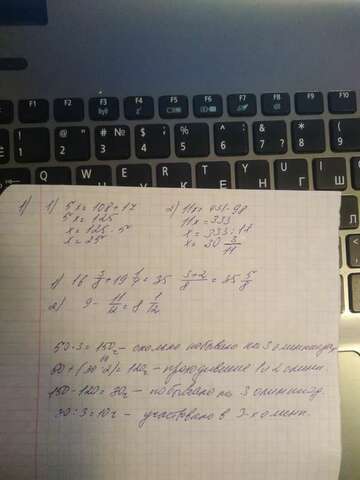 F1 F2 F3 F4 F5 F6 F7 F8 F9 F10
! 1 " 2 # № 3 $ ; 4 % 5 ^ : 6 & ? 7 * 8 ( 9
1) 1) 5x = 108 + 17
5x = 125
x = 125 : 5
x = 25
2) 11x = 431 - 98
11x = 333
x = 333 : 11
x = 30 3/11
1) 16 3/8 + 19 1/4 = 35 3+2/8 = 35 5/8
2) 9 - 11/12 = 8 1/12
50·3=150ч - сколько побывало на 3 олимпиадах
60+(30·2)=120ч - проходившие 1 и 2 олимп.
150-120=30ч - побывало на 3 олимпиад.
30:3=10ч - участвовало в 3-х олимп.